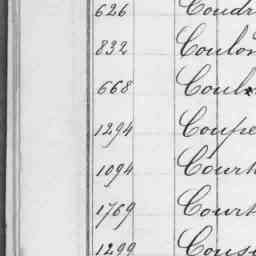 626 Coudr
832 Coulon
668 Coul
1294 Coupe
1094 Court
1769 Court
1299 Cous